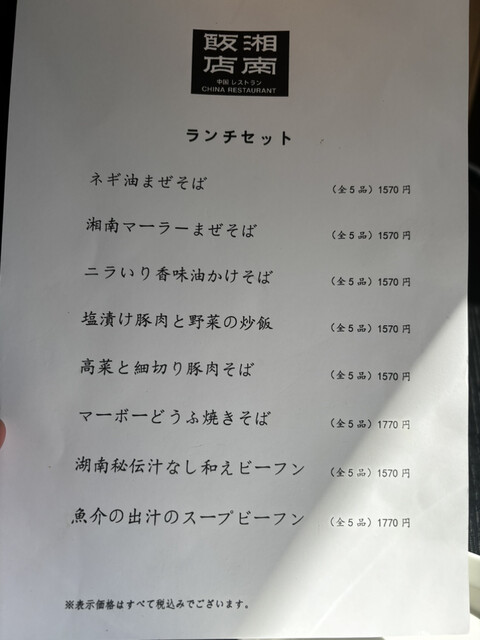 湘南
飯店
中国 レストラン
CHINA RESTAURANT
ランチセット
ネギ油まぜそば (全5品) 1570 円
湘南マーラーまぜそば (全5品) 1570 円
ニラいり香味油かけそば (全5品) 1570 円
塩漬け豚肉と野菜の炒飯 (全5品) 1570 円
高菜と細切り豚肉そば (全5品) 1570 円
マーボーどうふ焼きそば (全5品) 1770 円
湖南秘伝汁なし和えビーフン (全5品) 1570 円
魚介の出汁のスープビーフン (全5品) 1770 円
※表示価格はすべて税込みでございます。